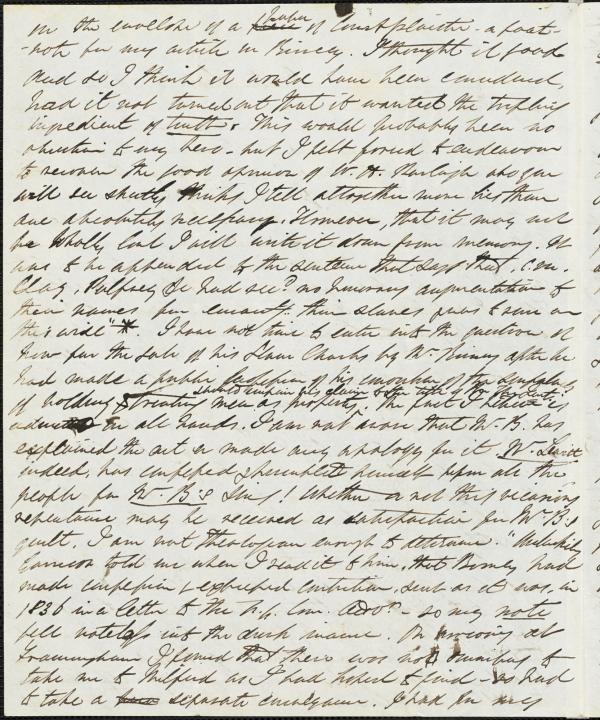 on the envelope of a paper of Court plaister - a foot-
-note for my article on Birney. I thought it good
and so I think it would have been considered,
had it not turned out that it wanted the trifling
ingredient of truth. This would probably been no
objection to my hero - but I felt forced to endeavour
to recover the good opinion of W. H. Burleigh who you
will see shortly thinks I tell altogether more lies than
are absolutely necessary. However, that it may not
be wholly lost I will write it down from memory. It
was to be appended to the sentence that says that, C.M.
Clay, Palfrey &c had rec? no honorary augmentation to
their names for emancipt? their slaves quos to
the: wide *. I have not time to enter into the question of
how far the sale of his slave Charles by Mr Birney after he
had made a public confession of his conviction of the
should impair his claim to the title of
of holding & treating men as property, The fact I believe is
admitted on all hands. I am not aware that Mr. B. has
explained the act or made any apology for it. Mr
indeed, has confessed & humbled himself upon all the
people for Mr. B's sins! Whether or not this vicarious
repentance may be received as satisfaction for Mr B.'s
guilt, I am not theologian enough to determine." Unluckily
Garrison told me when I read it to him, that Birney had
made confession & expressed contrition, such as it was, in
1836 in a letter to the N.Y. Com. Adv? - so my note
fell noteless into the dark inane. On arriving at
Framingham I found that there was not omnibus to
take me to Milford as I had hoped to find - so had
to take a separate conveyance. I had for my